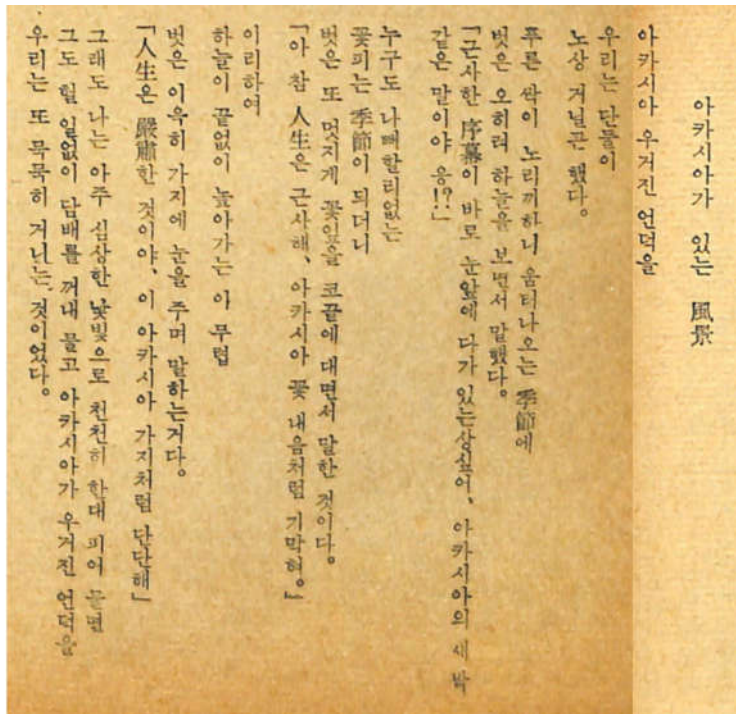 아카시아가 있는 風景
아카시아 우거진 언덕을
우리는 단둘이
노상 거닐곤 했다。
푸른 싹이 노리끼하니 움터나오는 季節에
벗은 오히려 하늘을 보면서 말했다。
「근사한 序幕이 바로 눈앞에 다가 있는상싶어、 아카시아의 새 싹
같은 말이야 응!?」
누구도 나빼할리없는
꽃피는 季節이 되더니
벗은 또 멋지게 꽃잎을 코끝에 대면서 말한 것이다。
「아 참 人生은 근사해、 아카시아 꽃 내음처럼 기막혀。」
이리하여
하늘이 끝없이 높아가는 이 무렵
벗은 이윽히 가지에 눈을 주며 말하는거다。
「人生은 嚴肅한 것이야、 이 아카시아 가지처럼 단단해」
그래도 나는 아주 심상한 낯빛으로 천천히 한대 피어 물면
그도 헐 일없이 담배를 꺼내 물고 아카시아가 우거진 언덕을
우리는 또 묵묵히 거니는 것이었다。